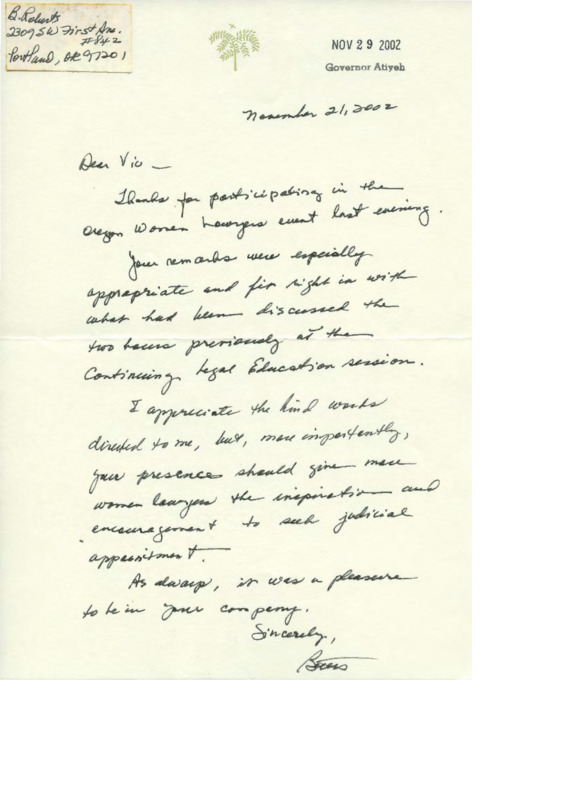 B. Roberts
2309 SW First Ave.
#842
Portland, OR 97201
NOV 29 2002
Governor Atiyeh
November 21, 2002
Dear Vic —
Thanks for participating in the
Oregon Women Lawyers event last evening.
Your remarks were especially
appropriate and fit right in with
what had been discussed the
two hours previously at the
Continuing Legal Education session.
I appreciate the kind words
directed to me, but, more importantly,
your presence should give more
women lawyers the inspiration and
encouragement to seek judicial
appointment.
As always, it was a pleasure
to be in your company.
Sincerely,
Betty